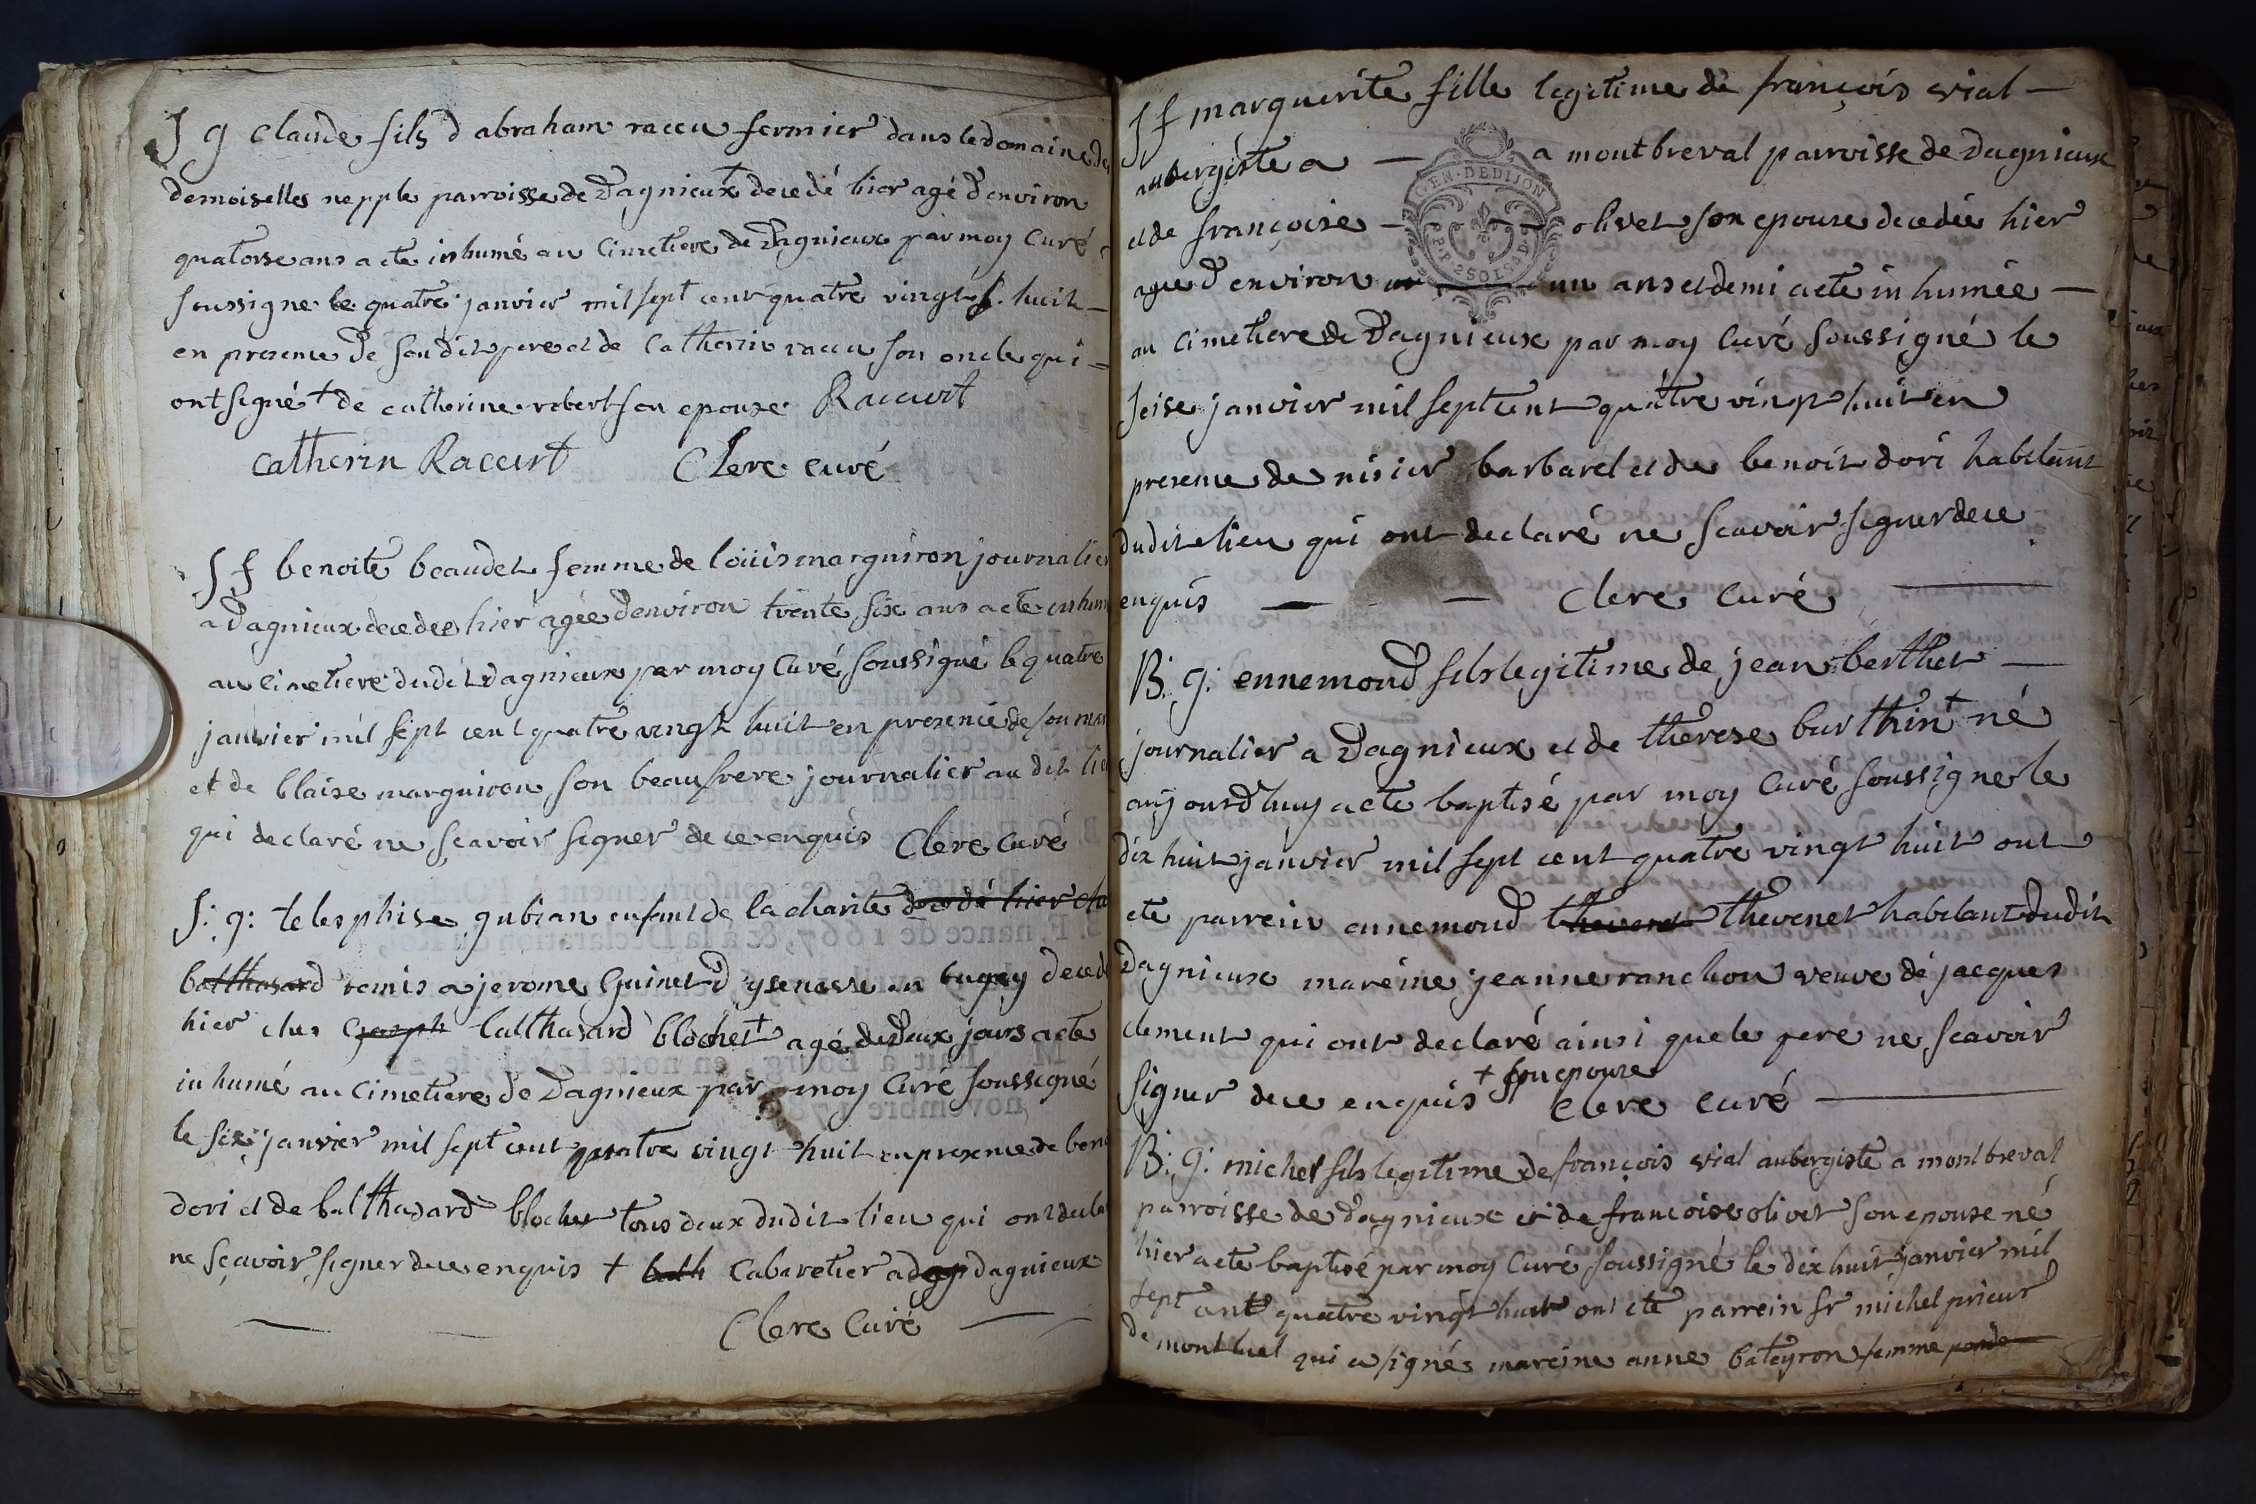 S g claude fils d abraham raccu fermier dans le domaine de
demoiselles nepple parroisse de Dagnieux + decedé hier agé d'environ
quatorse ans a eté inhumé au cimetiere de Dagnieux par moy curé
soussigné le quatre janvier mil sept cent quatre vingt huit
en presence de son dit pere et de catherin raccu son oncle qui =
ont signé + de catherine robert son epouse Raccurt
catherin Raccurt Clerc curé
S f benoite beaudet femme de loüis marguiron journalier
a Dagnieux decedee hier agée d'environ trente six ans a eté inhum
au cimetiere dudit Dagnieux par moy curé soussigné le quatre
janvier mil sept cent quatre vingt huit en presence de son mar
et de blaise marguiron son beaufrere journalier au dit lieu
qui declaré ne sçavoir signer de ce enquis Clerc curé
S: g: telesphise gubian enfant de la charité decedé hier ché
balthasard remis a jerome Guinet d ysenasse en bugey decedé
hier ches joseph balthasard blochet + agé de deux jours a eté
inhumé au cimetiere de Dagnieux par moy curé soussigné
le six janvier mil sept cent quatre vingt huit en presence de beno
dori et de balthasard blochet tous deux dudit lieu qui ont decla
ne sçavoir signer de ce enquis + balth cabaretier a dagnieux
Clerc Curé
S f marguerite fille legitime de françois vial
aubergiste a a montbreval parroisse de Dagnieux
GEN. DE DIJON
et de françoise olivet son epouse decedée hier
agée d'environ un ans et demi a eté inhumée
au cimetiere de Dagnieux par moy curé soussigné le
seise janvier mil sept cent quatre vingt huit en
presence de nisier barbaret et de benoit dori habitant
dudit lieu qui ont declaré ne scavoir signer de ce
enquis Clerc curé
B: g: ennemond fils legitime de jean berthet
journalier a Dagnieux et de therese burthin + né
aujourd'huy a eté baptisé par moy curé soussigné le
dix huit janvier mil sept cent quatre vingt huit ont
eté parrein ennemond thevenet thevenet habitant dudit
Dagnieux mareine jeanne ranchon veuve de jacques
clement qui ont declaré ainsi que le pere ne scavoir
signer de ce enquis + son epouse Clerc curé
B: g: michel fils legitime de françois vial aubergiste a montbreval
parroisse de Dagnieux et de françoise olivet son epouse né
hier a eté baptisé par moy curé soussigné le dix huit janvier mil
sept cent quatre vingt huit ont eté parrein sr michel prieur
de montluel qui a signé mareine anne bateyron femme